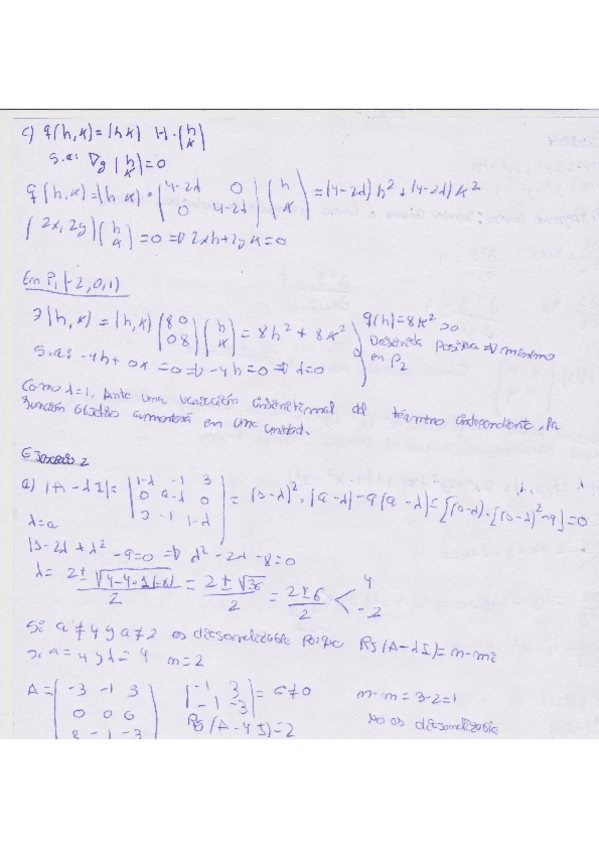 c) q(h,k)=(h k) H·(h k)
s.a: ∇g (h k)=0
q(h,k)=(h k)·(4-2λ 0 0 4-2λ)(h k)=(4-2λ)h²+(4-2λ)k²
(2x, 2y)(h k)=0 ⇒ 2xh+2yk=0
En P₁(-2,0,1)
(h,k)=(h,k)(8 0 0 8)(h k)=8h²+8k² q(h)=8k²>0
s.a: -4h+0k=0 ⇒ -4h=0 ⇒ Definida positiva ⇒ mínimo en P₂
Como λ=1, ante una variación del término independiente, la
función objetivo aumentará en una unidad.
Ejercicio 2
a) |A-λI|= |1-λ -1 3 0 a-λ 0 3 -1 1-λ| =
λ=a
λ²-9=0 ⇒ λ²-2λ-8=0
λ= = 2±√36 2 = 2±6 2 < 4 -2
Si a≠4 y a≠2 es diagonalizable porque Rg(A-λI)=n-mi
si a=4 y λ=4 m=2
A=(-3 -1 3 0 0 0 3 -1 -3) |-1 3 -1 -3|= 6≠0 n-m=3-2=1
Rg(A-4I)=2 No es diagonalizable